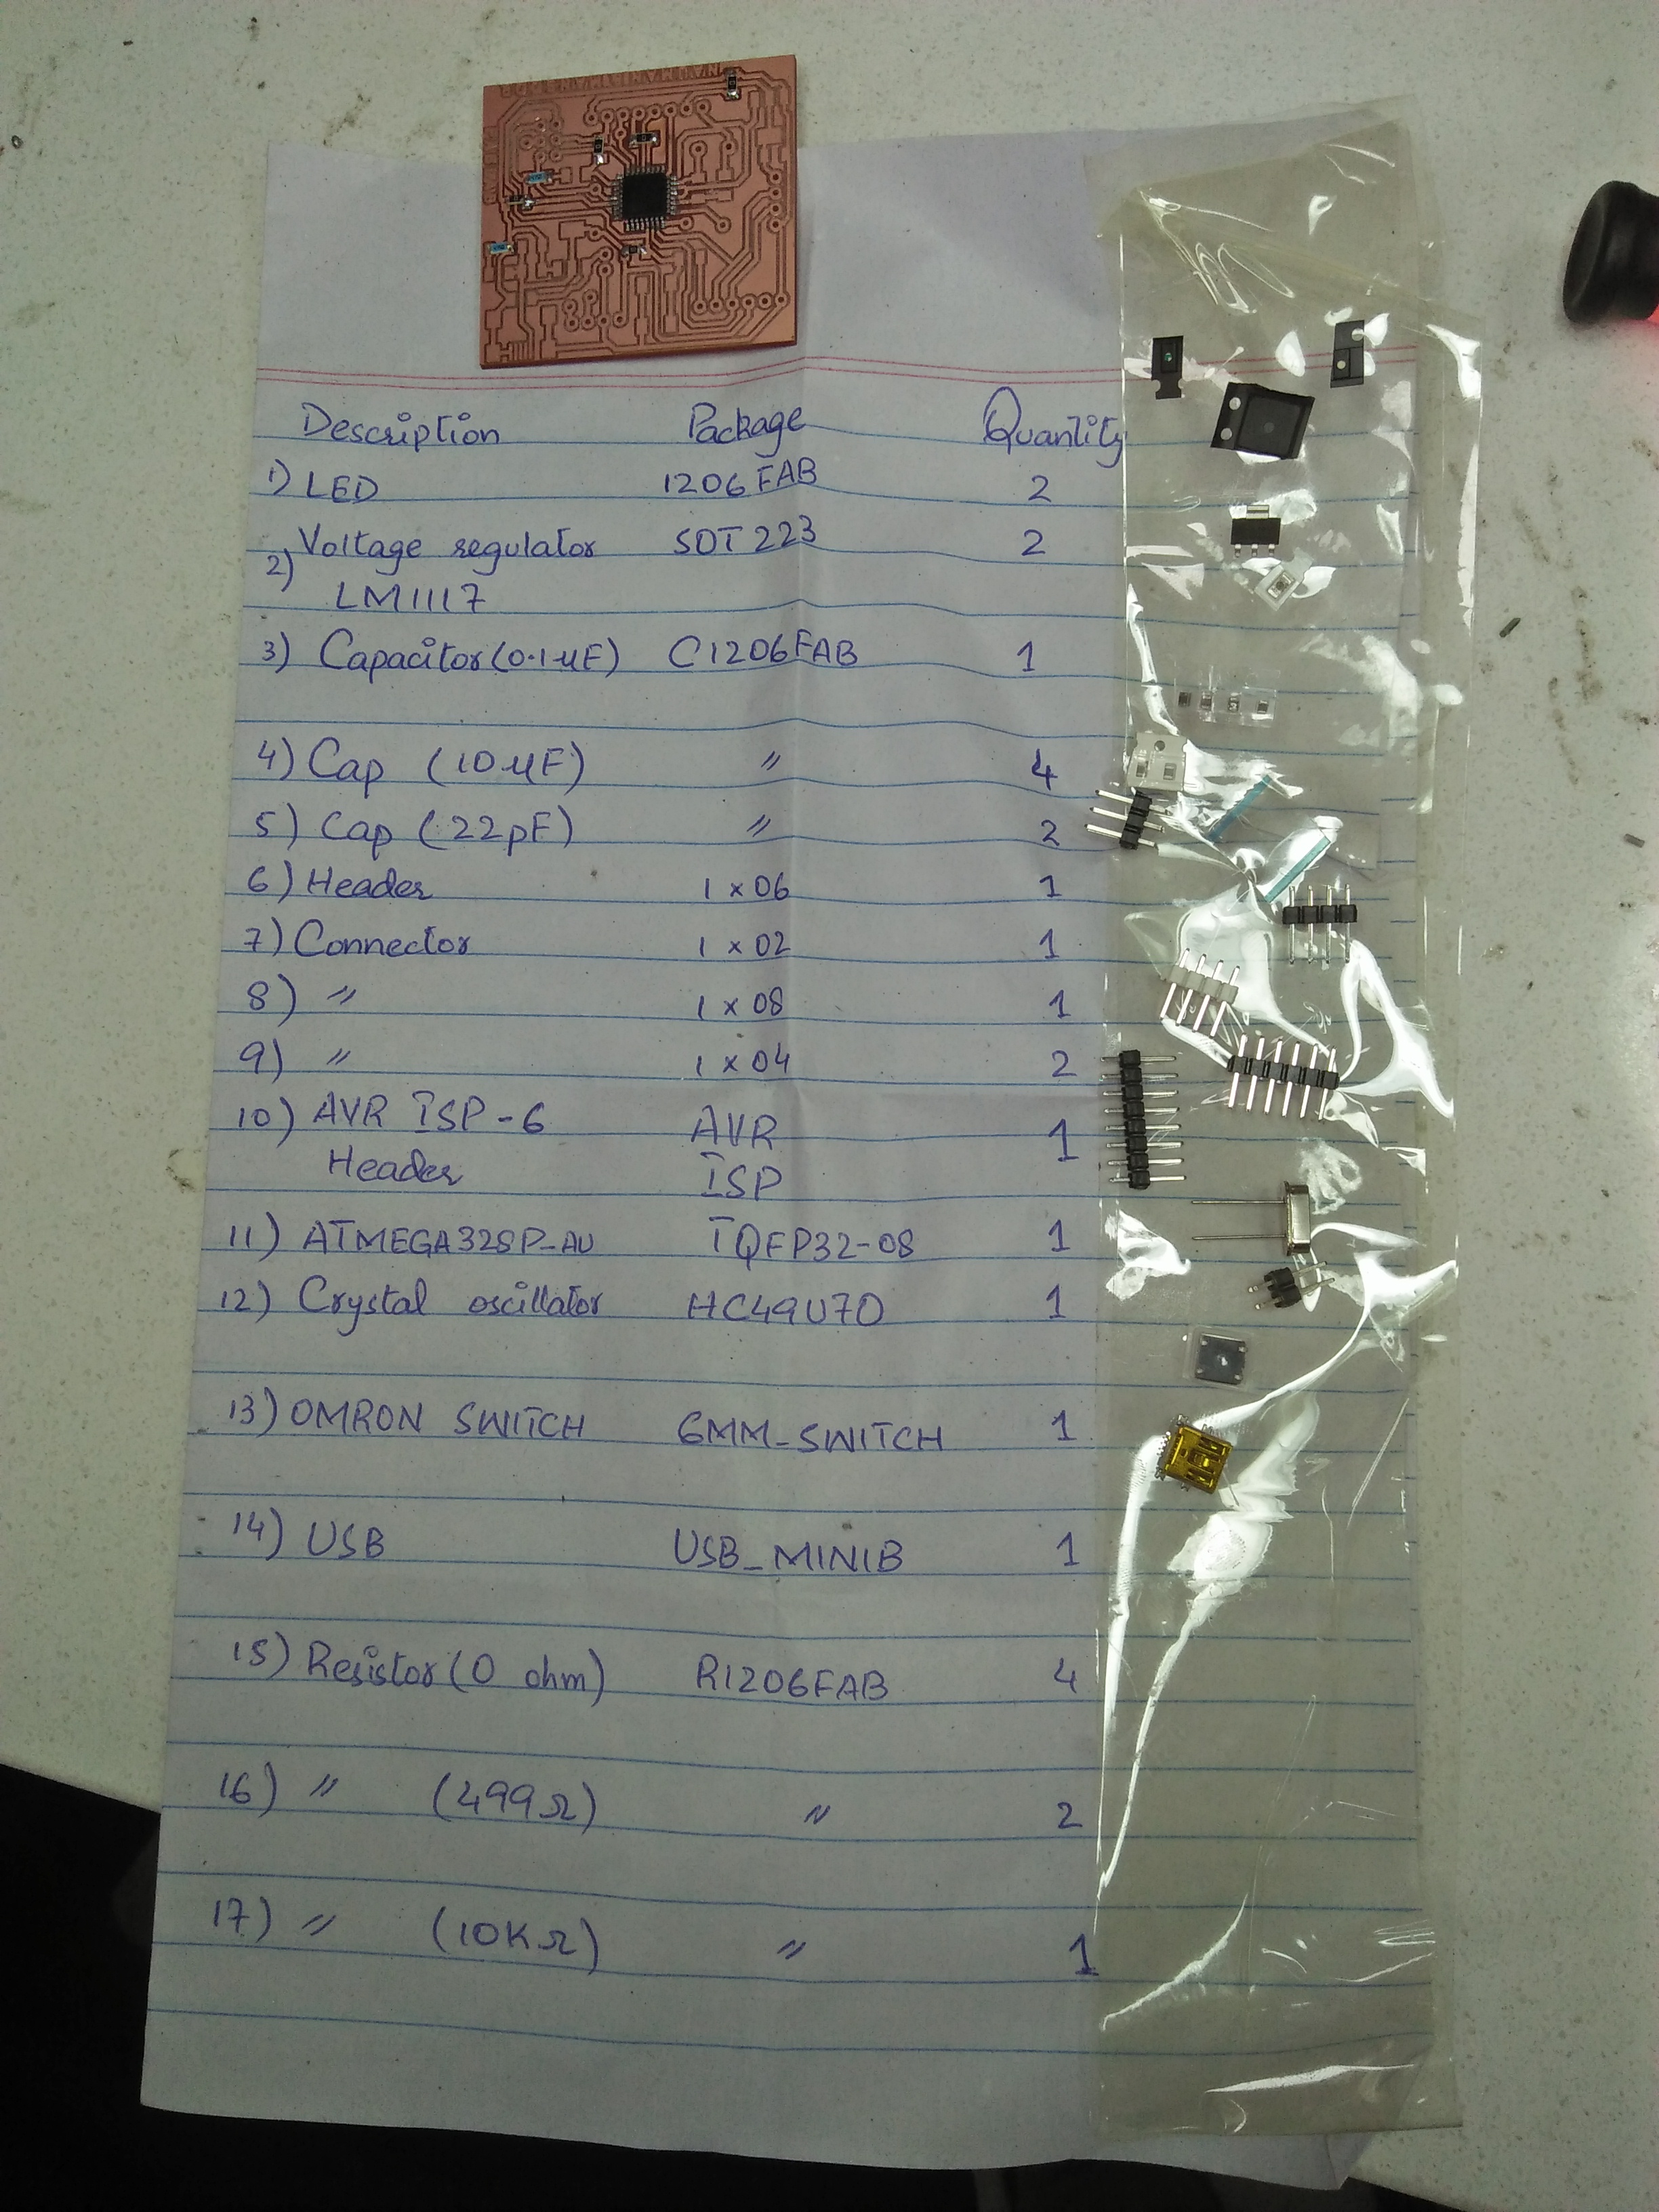 Description Package Quantity
1) LED 1206FAB 2
2) Voltage regulator SOT 223 2
LM1117
3) Capacitor (0.1 uF) C1206FAB 1
4) Cap (10 uF) 〃 4
5) Cap (22pF) 〃 2
6) Header 1 x 06 1
7) Connector 1 x 02 1
8) 〃 1 x 08 1
9) 〃 1 x 04 2
10) AVR ISP-6 AVR 1
Header ISP
11) ATMEGA328P-AU TQFP32-08 1
12) Crystal oscillator HC49U70 1
13) OMRON SWITCH 6MM_SWITCH 1
14) USB USB_MINIB 1
15) Resistor (0 ohm) R1206FAB 4
16) 〃 (499Ω) 〃 2
17) 〃 (10KΩ) 〃 1